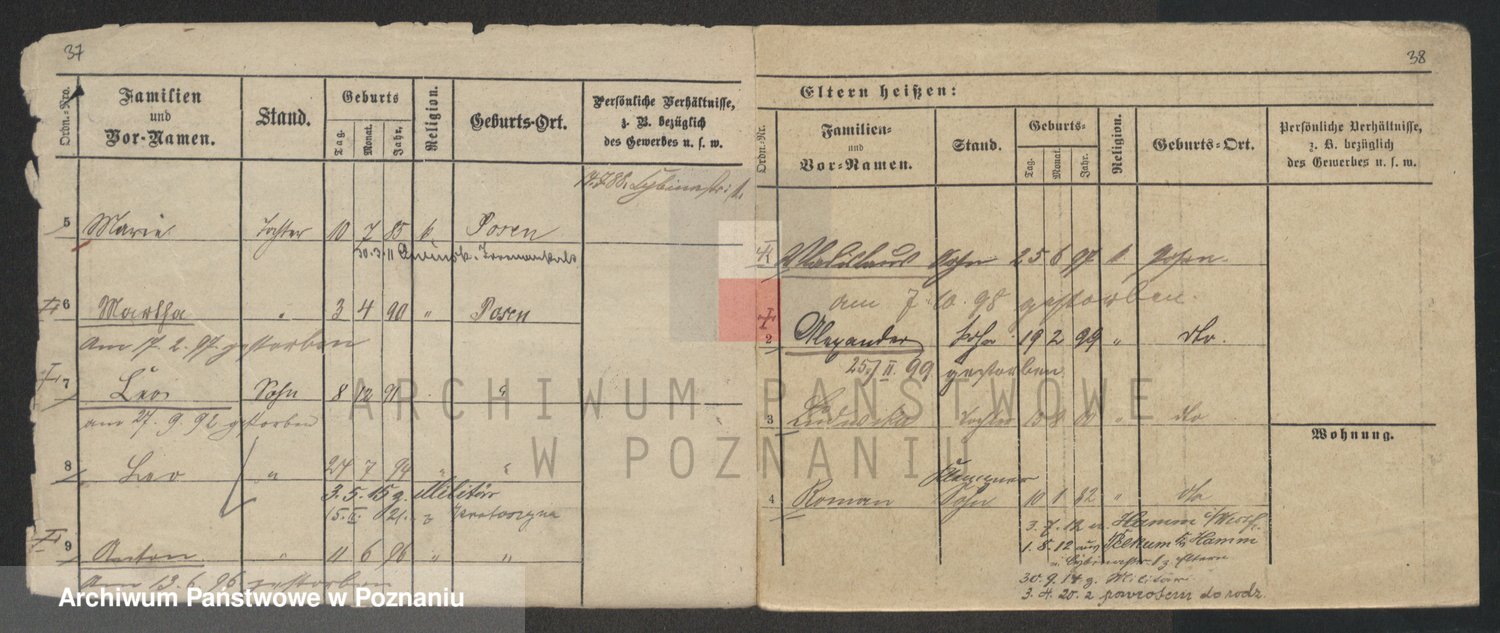 37
Ordn.-Nro.
Familien
und
Vor-Namen.
Stand.
Geburts
Tag.
Monat.
Jahr.
Religion.
Geburts-Ort.
Persönliche Verhältnisse,
z. B. bezüglich
des Gewerbes u. s. w.
5 Marie Tochter 10 7 85 k. Posen
6 Martha " 3 4 90 " Posen
Am 17. 2. 97. gestorben
7 Leo Sohn 8 12 91 "
am 27. 9. 92 gestorben
8 Leo " 24 7 94 " "
3. 5. 15 g. Militär
15. II. 21. z Krotoszyna
9 Anton " 11 6 96 " "
Am 13. 6. 96 gestorben
38
Eltern heißen:
Ordn.-Nr.
Familien-
und
Vor-Namen.
Stand.
Geburts-
Tag.
Monat.
Jahr.
Religion.
Geburts-Ort.
Persönliche Verhältnisse,
z. B. bezüglich
des Gewerbes u. s. w.
Wladislaus Sohn 25 6 97 k. Posen
am 7. 10. 98 gestorben.
2 Alexander Sohn 19 2 99 " dto.
25. II. 99 gestorben
3 Ludwika Tochter " dto
Wohnung.
4 Roman Sohn 10 " dto
3. 7. 12 n. Hamm i/Westf.
1. 8. 12 aus Pelkum Hamm
30. 9. 14 g. Militär
3. 4. 20. z powrotem do rodz.
ARCHIWUM PAŃSTWOWE
W POZNANIU
Archiwum Państwowe w Poznaniu